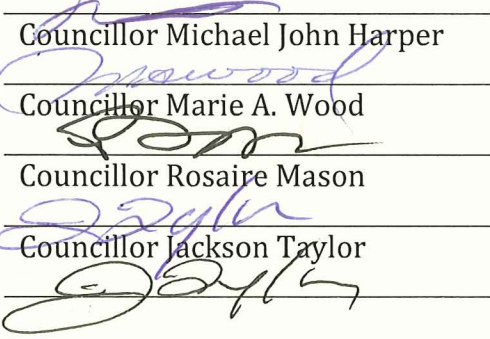 Councillor Michael John Harper
mawood
Councillor Marie A. Wood
Councillor Rosaire Mason
J Taylor
Councillor Jackson Taylor
J Taylor